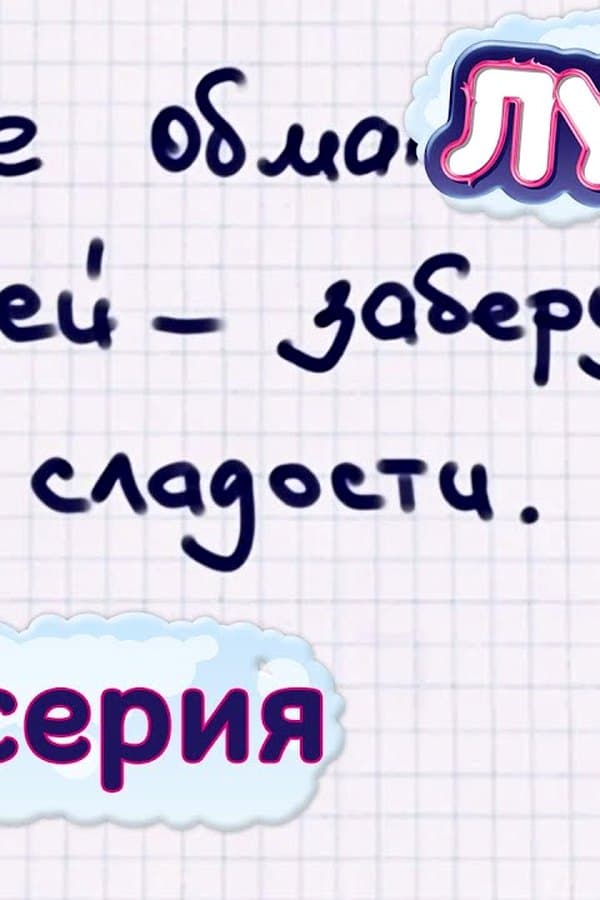 е обма
ЛУ
ей – заберу
сладости.
серия